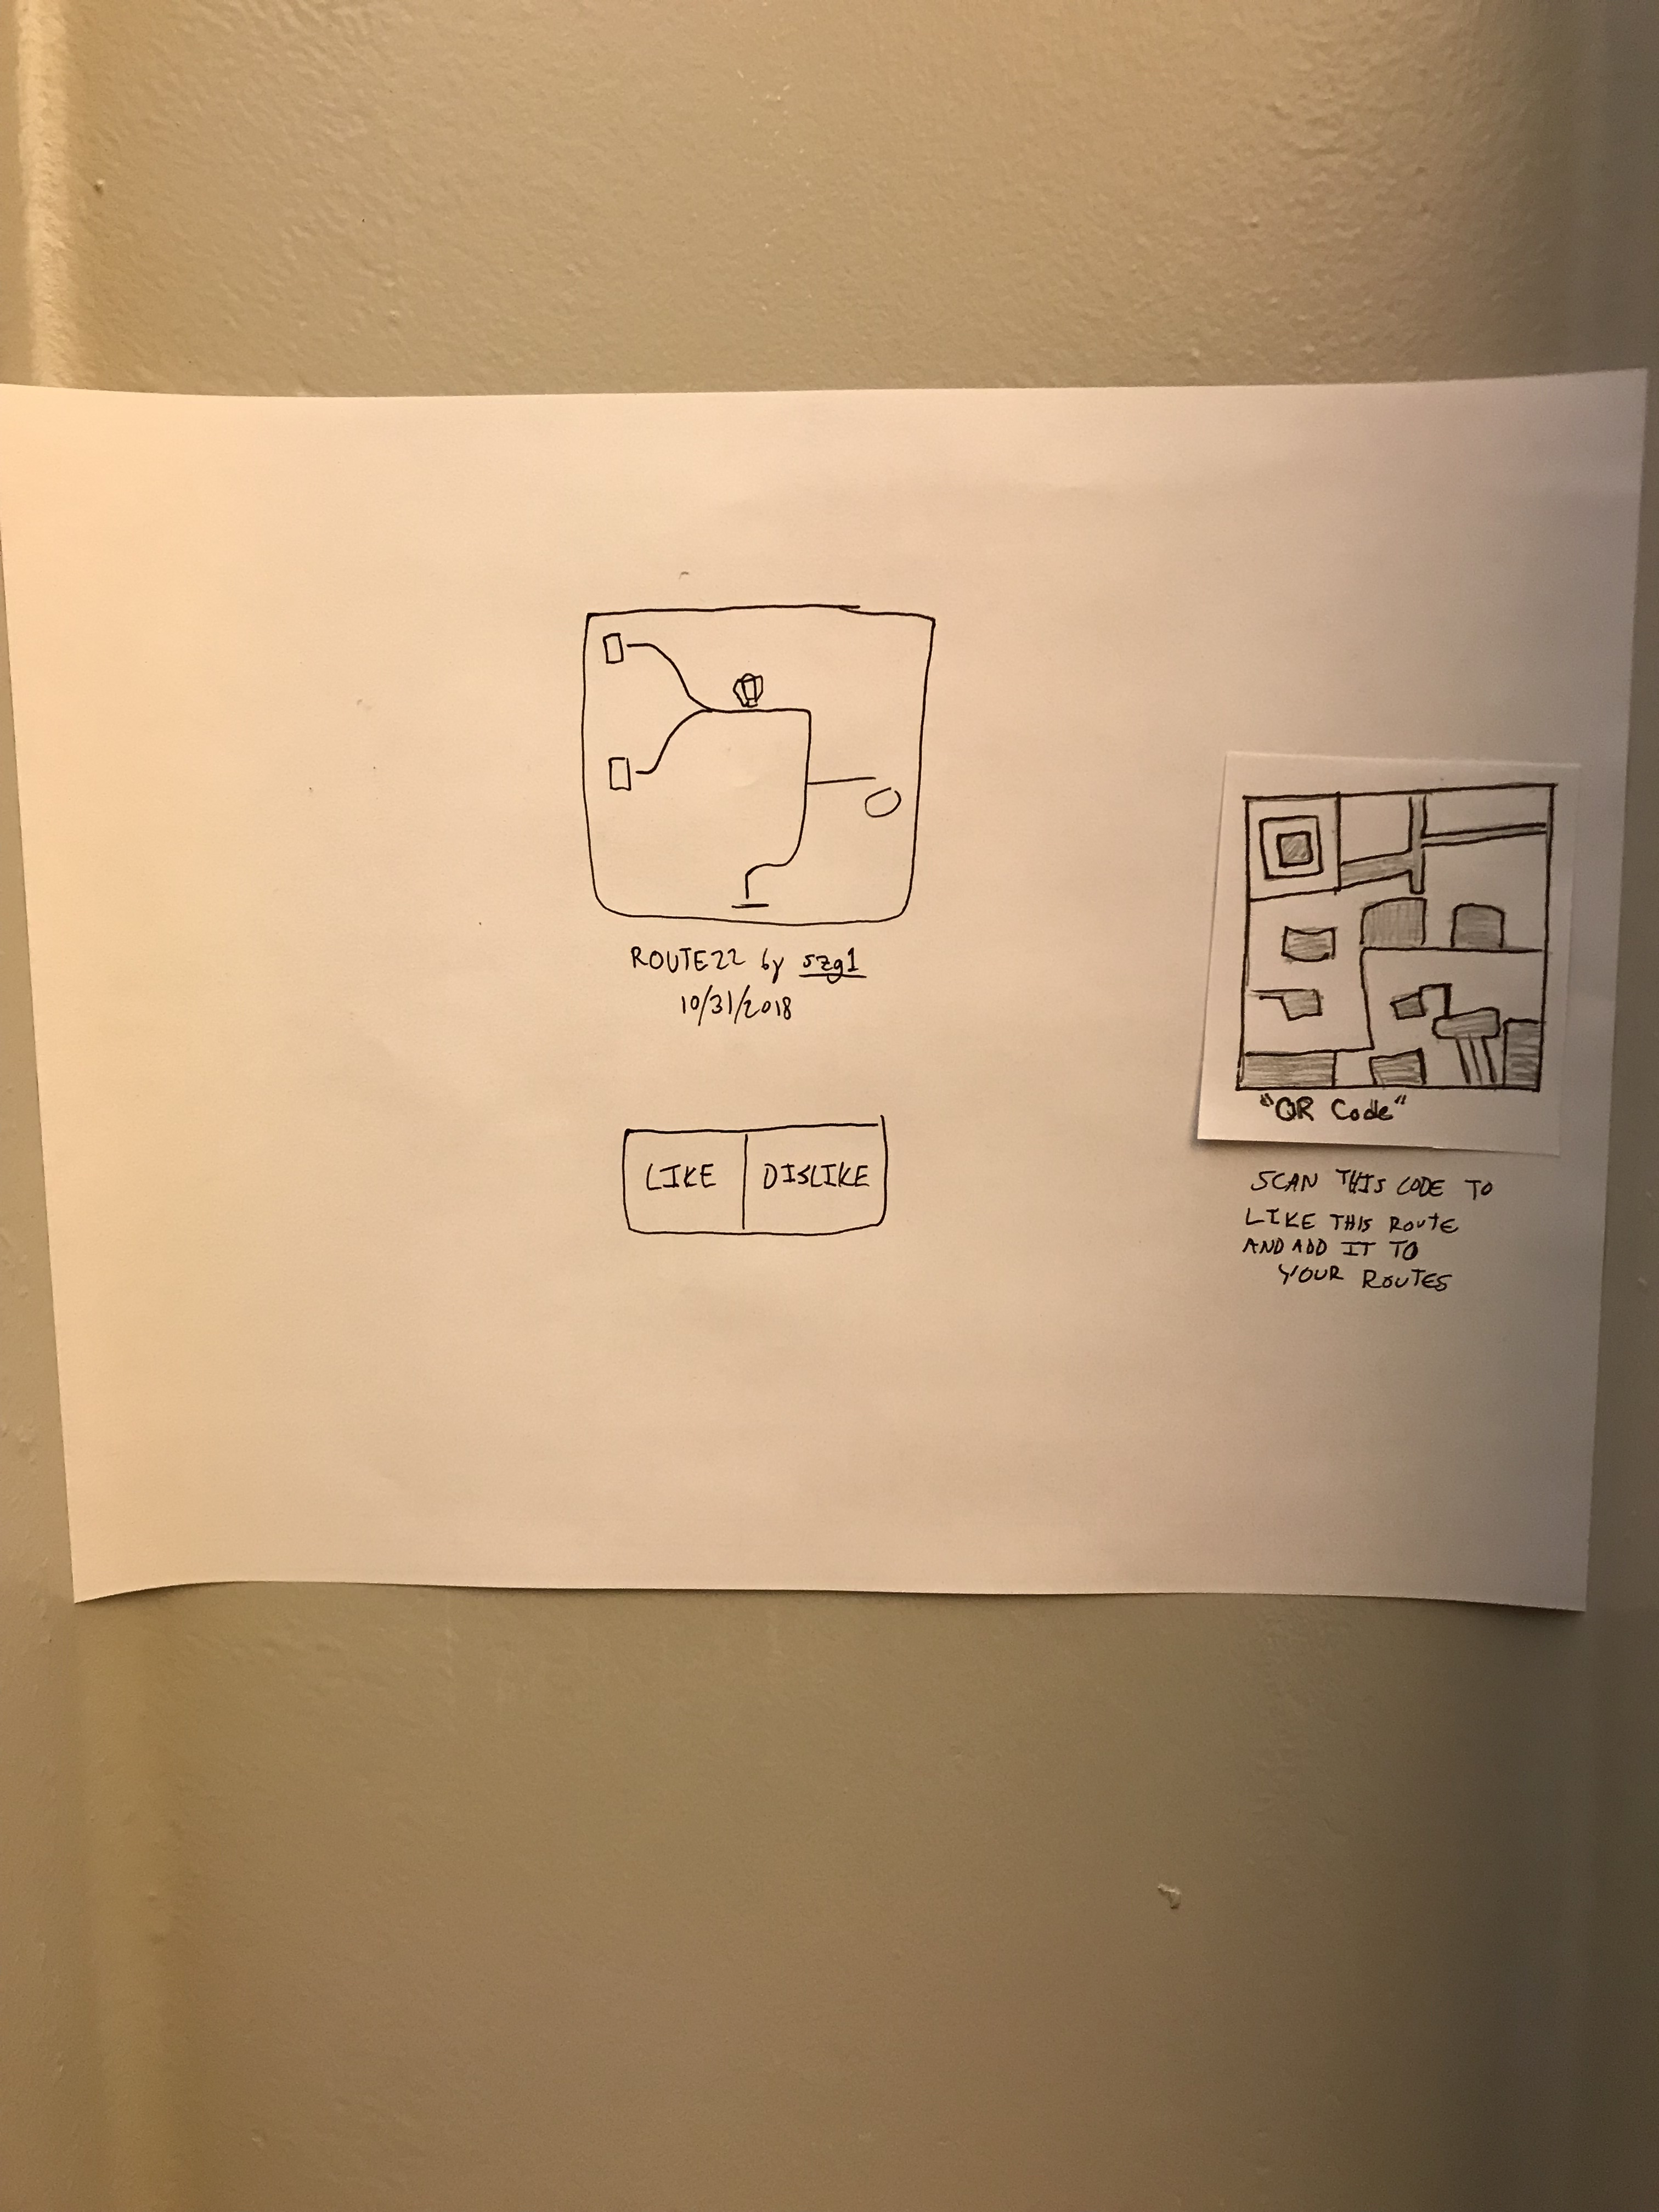 ROUTE22 by szg1
10/31/2018
LIKE DISLIKE
"QR Code"
SCAN THIS CODE TO
LIKE THIS ROUTE
AND ADD IT TO
YOUR ROUTES